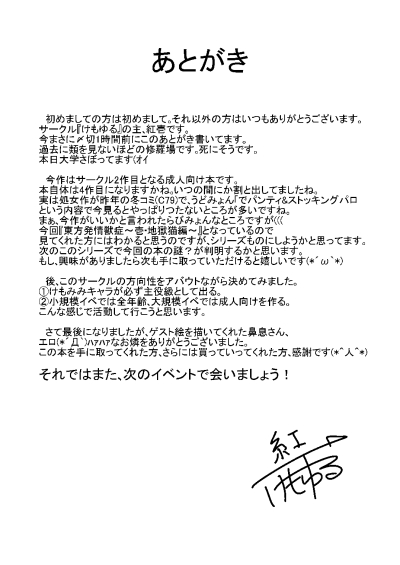 あとがき
初めましての方は初めまして。それ以外の方はいつもありがとうございます。
サークル『けもゆる』の主、紅壱です。
今まさに〆切1時間前にこのあとがき書いてます。
過去に類を見ないほどの修羅場です。死にそうです。
本日大学さぼってます(オイ
今作はサークル2作目となる成人向け本です。
本自体は4作目になりますかね。いつの間にか割と出してましたね。
実は処女作が昨年の冬コミ(C79)で、うどみょん「でパンティ&ストッキングパロ
という内容で今見るとやっぱりつたないところが多いですね。
まぁ、今作がいいかと言われたらびみょんなところですが(((
今回『東方発情獣症～壱・地獄猫編～』となっているので
見てくれた方にはわかると思うのですが、シリーズものにしようかと思ってます。
次のこのシリーズで今回の本の謎？が判明するかと思います。
もし、興味がありましたら次も手に取っていただけると嬉しいです(*´ω｀*)
後、このサークルの方向性をアバウトながら決めてみました。
①けもみみキャラが必ず主役級として出る。
②小規模イベでは全年齢、大規模イベでは成人向けを作る。
こんな感じで活動して行こうと思います。
さて最後になりましたが、ゲスト絵を描いてくれた鼻息さん、
エロ(*´Д｀)ﾊｧﾊｧなお燐をありがとうございました。
この本を手に取ってくれた方、さらには買っていってくれた方、感謝です(*^人^*)
それではまた、次のイベントで会いましょう！
紅一
けもゆる